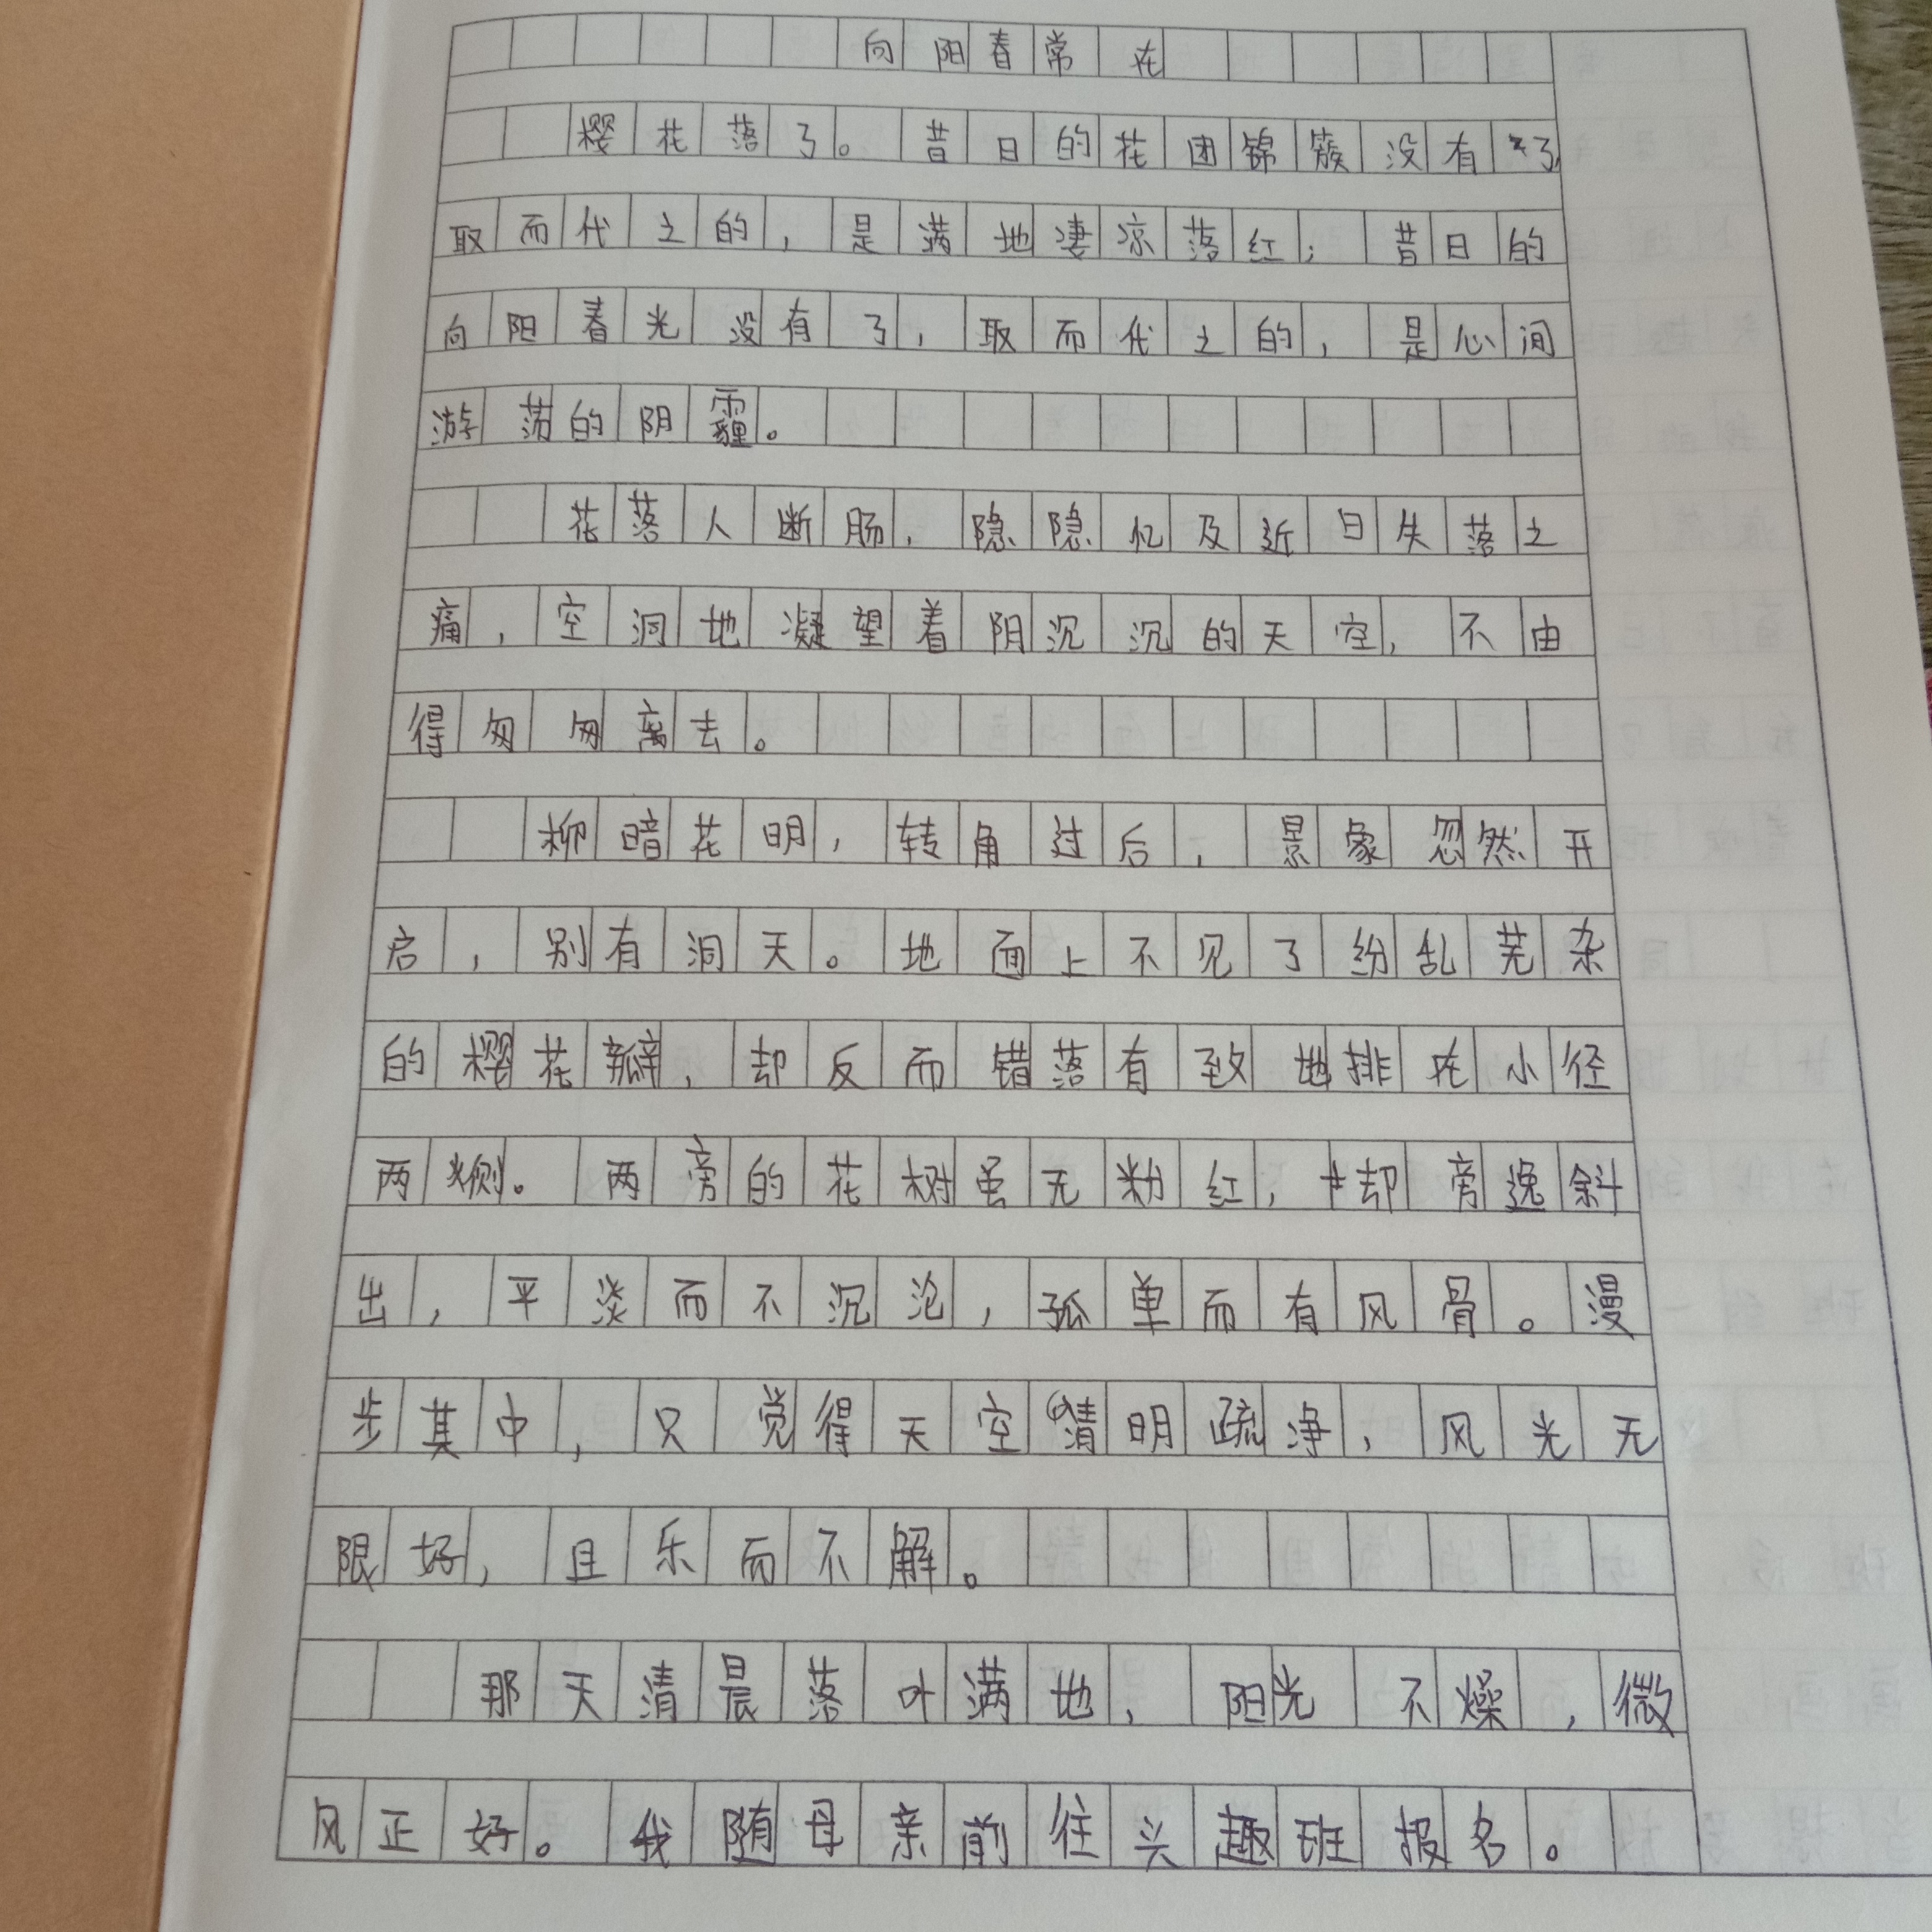 向阳春常在
樱花落了。昔日的花团锦簇没有了，
取而代之的，是满地凄凉落红；昔日的
向阳春光没有了，取而代之的，是心间
游荡的阴霾。
花落人断肠，隐隐忆及近日失落之
痛，空洞地凝望着阴沉沉的天空，不由
得匆匆离去。
柳暗花明，转角过后，景象忽然开
启，别有洞天。地面上不见了纷乱芜杂
的樱花瓣，却反而错落有致地排在小径
两侧。两旁的花树虽无粉红，却旁逸斜
出，平淡而不沉沦，孤单而有风骨。漫
步其中，只觉得天空清明疏净，风光无
限好，且乐而不解。
那天清晨落叶满地，阳光不燥，微
风正好。我随母亲前往兴趣班报名。